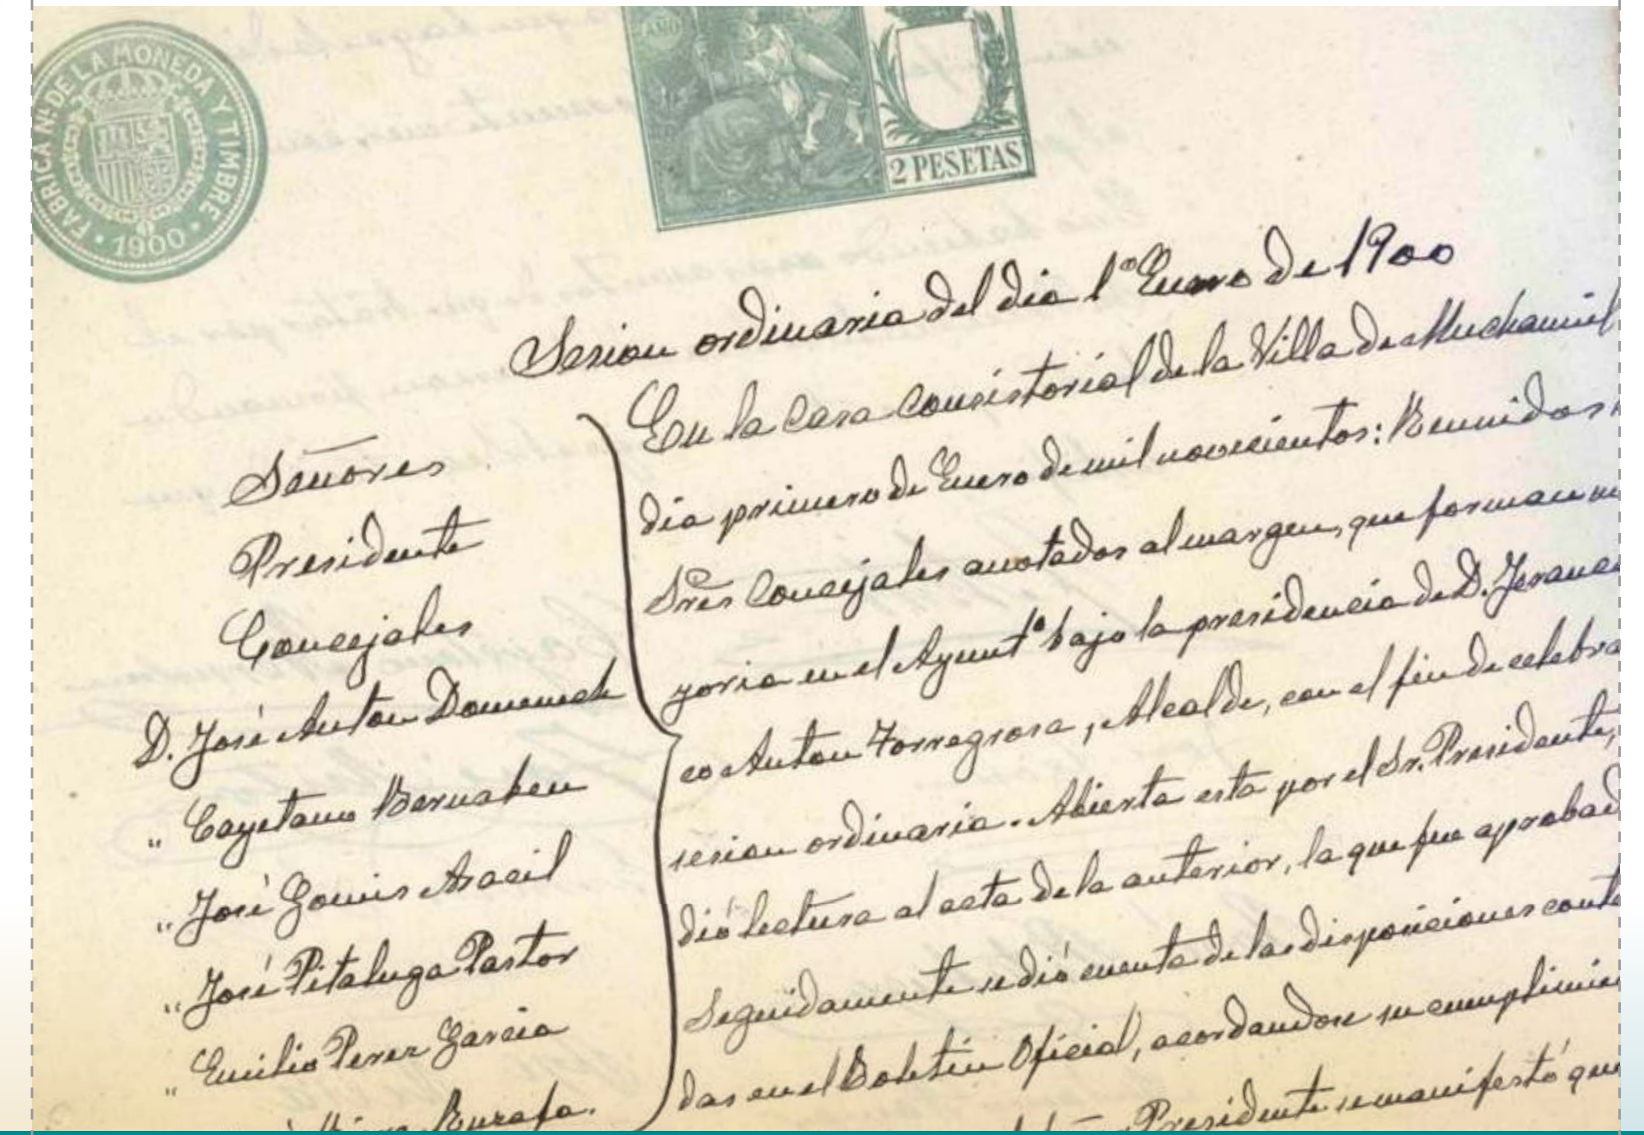 FABRICA Nª DE LA MONEDA Y TIMBRE
· 1900 ·
AÑO
2 PESETAS
Sesion ordinaria del dia 1º Enero de 1900
Señores
Presidente
Concejales
D. José Anton Domenech
" Cayetano Bernabeu
" José Gomis Aracil
" José Pitaluga Pastor
" Emilio Perez Garcia
En la Casa Consistorial de la Villa de Muchamiel
dia primero de Enero de mil novecientos: Reunidos
Sres Concejales anotados al margen, que forman
yoria en el Ayuntº bajo la presidencia de D. Francis
co Anton Torregrosa, Alcalde, con el fin de celebra
sesion ordinaria. Abierta esta por el Sr. Presidente,
dió lectura al acta de la anterior, la que fue aprobad
Seguidamente se dió cuenta de las disposiciones conte
das en el Boletin Oficial, acordandose su cumplimie
Presidente se manifestó que